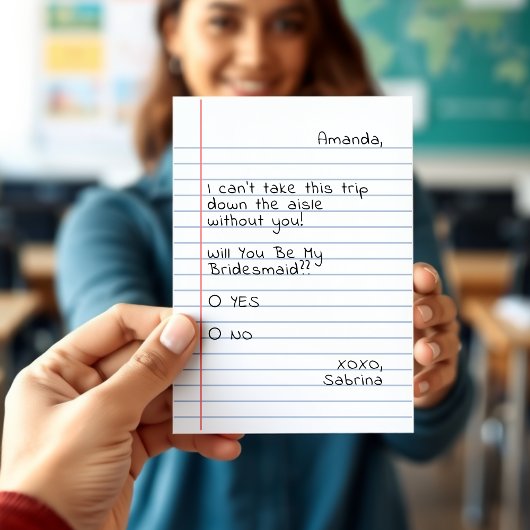 Amanda,
I can't take this trip
down the aisle
without you!
will You Be My
Bridesmaid??
O YES
O NO
XOXO,
Sabrina